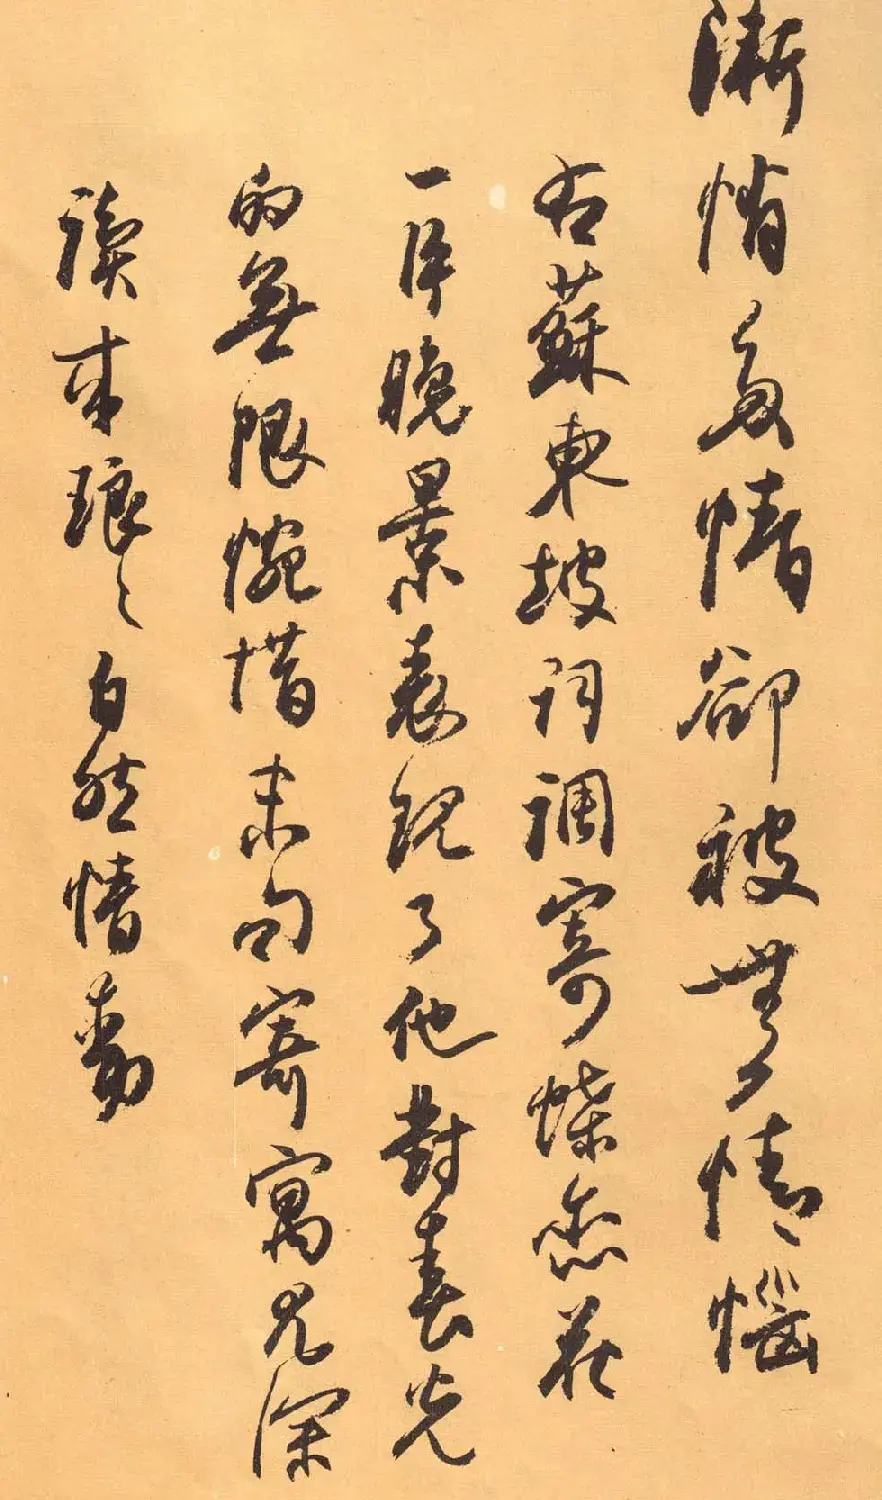 漸悄多情卻被無情惱
右蘇東坡詞調寄蝶恋花
一片晚景表現了他對春光
的無限惋惜末句寄寓尤深
讀來琅々自然情動